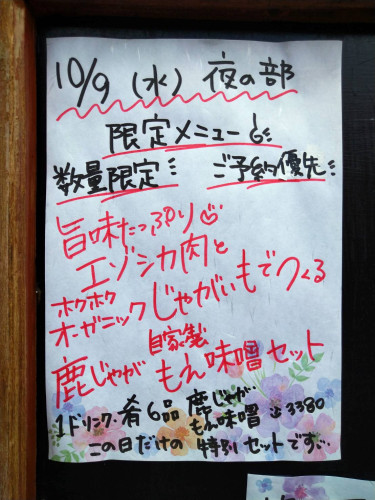 10/9 (水) 夜の部
限定メニュー
数量限定 ご予約優先
旨味たっぷり
エゾシカ肉と
ホクホク
オーガニックじゃがいもでつくる
自家製
鹿じゃが もん味噌セット
1ドリンク・肴6品 鹿じゃが
もん味噌 3380
この日だけの 特別セットです…